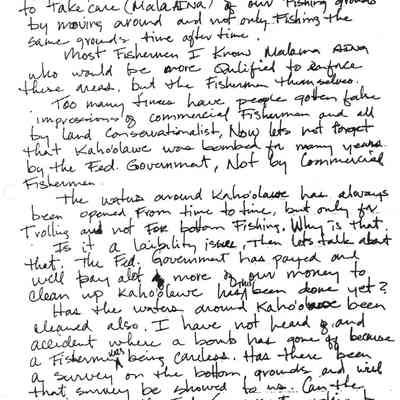 to take care (MalaAINA) of our Fishing grounds
by moving around and not only Fishing the
same grounds time after time.
Most Fishermen I Know Malama AINA
who would be more Qulified to
these areas. but the Fishermen themselves.
Too many times have people gotten fake
impressions of commercial Fisherman and all
by land Conservationalist, Now lets not forget
that Kaho'olawe was bombed for many years
by the Fed. Government, Not by Commercial
Fishermen.
The waters around Kaho'olawe has always
been opened From time to time, but only for
Trolling and not For bottom Fishing. Why is that.
Is it a laibality issue, Then lets talk about
that. The Fed. Government has payed and
will pay alot more of our money to
clean up Kaho'olawe has been done yet?
Has the waters around Kaho'olawe been
cleaned also. I have not heard of and
accident where a bomb has gone of because
a Fisherman was being careless. Has there been
a survey on the bottom, grounds, and will
that survey be showed to us. Can they